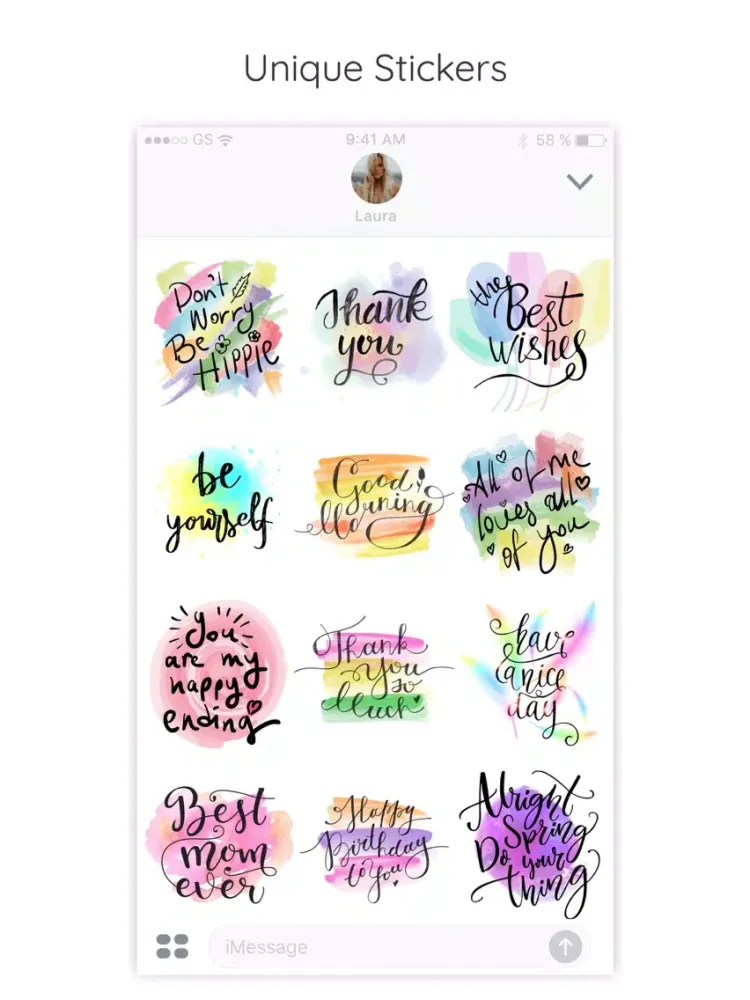 Unique Stickers
GS
9:41 AM
58 %
Laura
Don't
Worry
Be
Hippie
Thank
you
the
Best
wishes
be
yourself
Good
Morning
All of me
loves all
of you
You
are my
happy
ending
Thank
You so
Much
have
a nice
day
Best
mom
ever
Happy
Birthday
to You
Alright
Spring
Do your
thing
iMessage